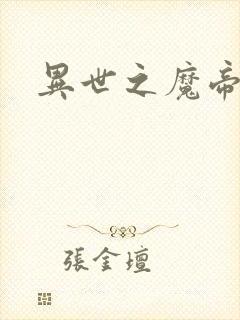 異世之魔帝
張金壇